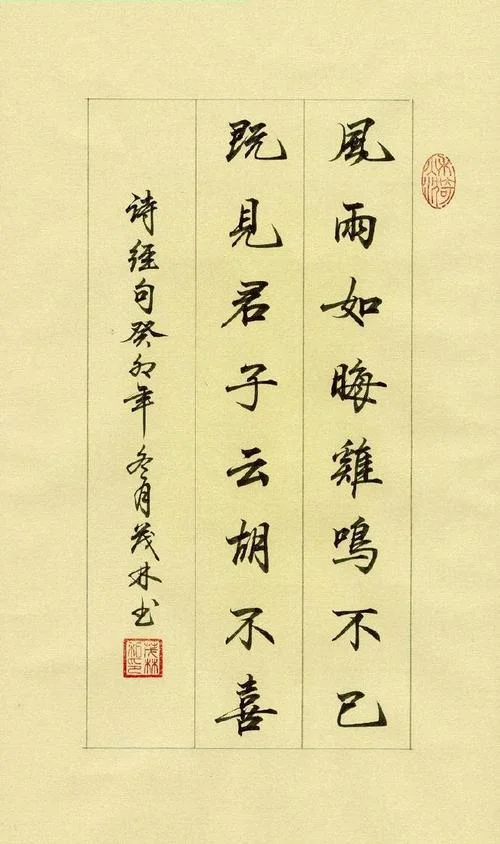 風雨如晦雞鳴不已
既見君子云胡不喜
詩經句癸卯年冬月茂林書
茂林